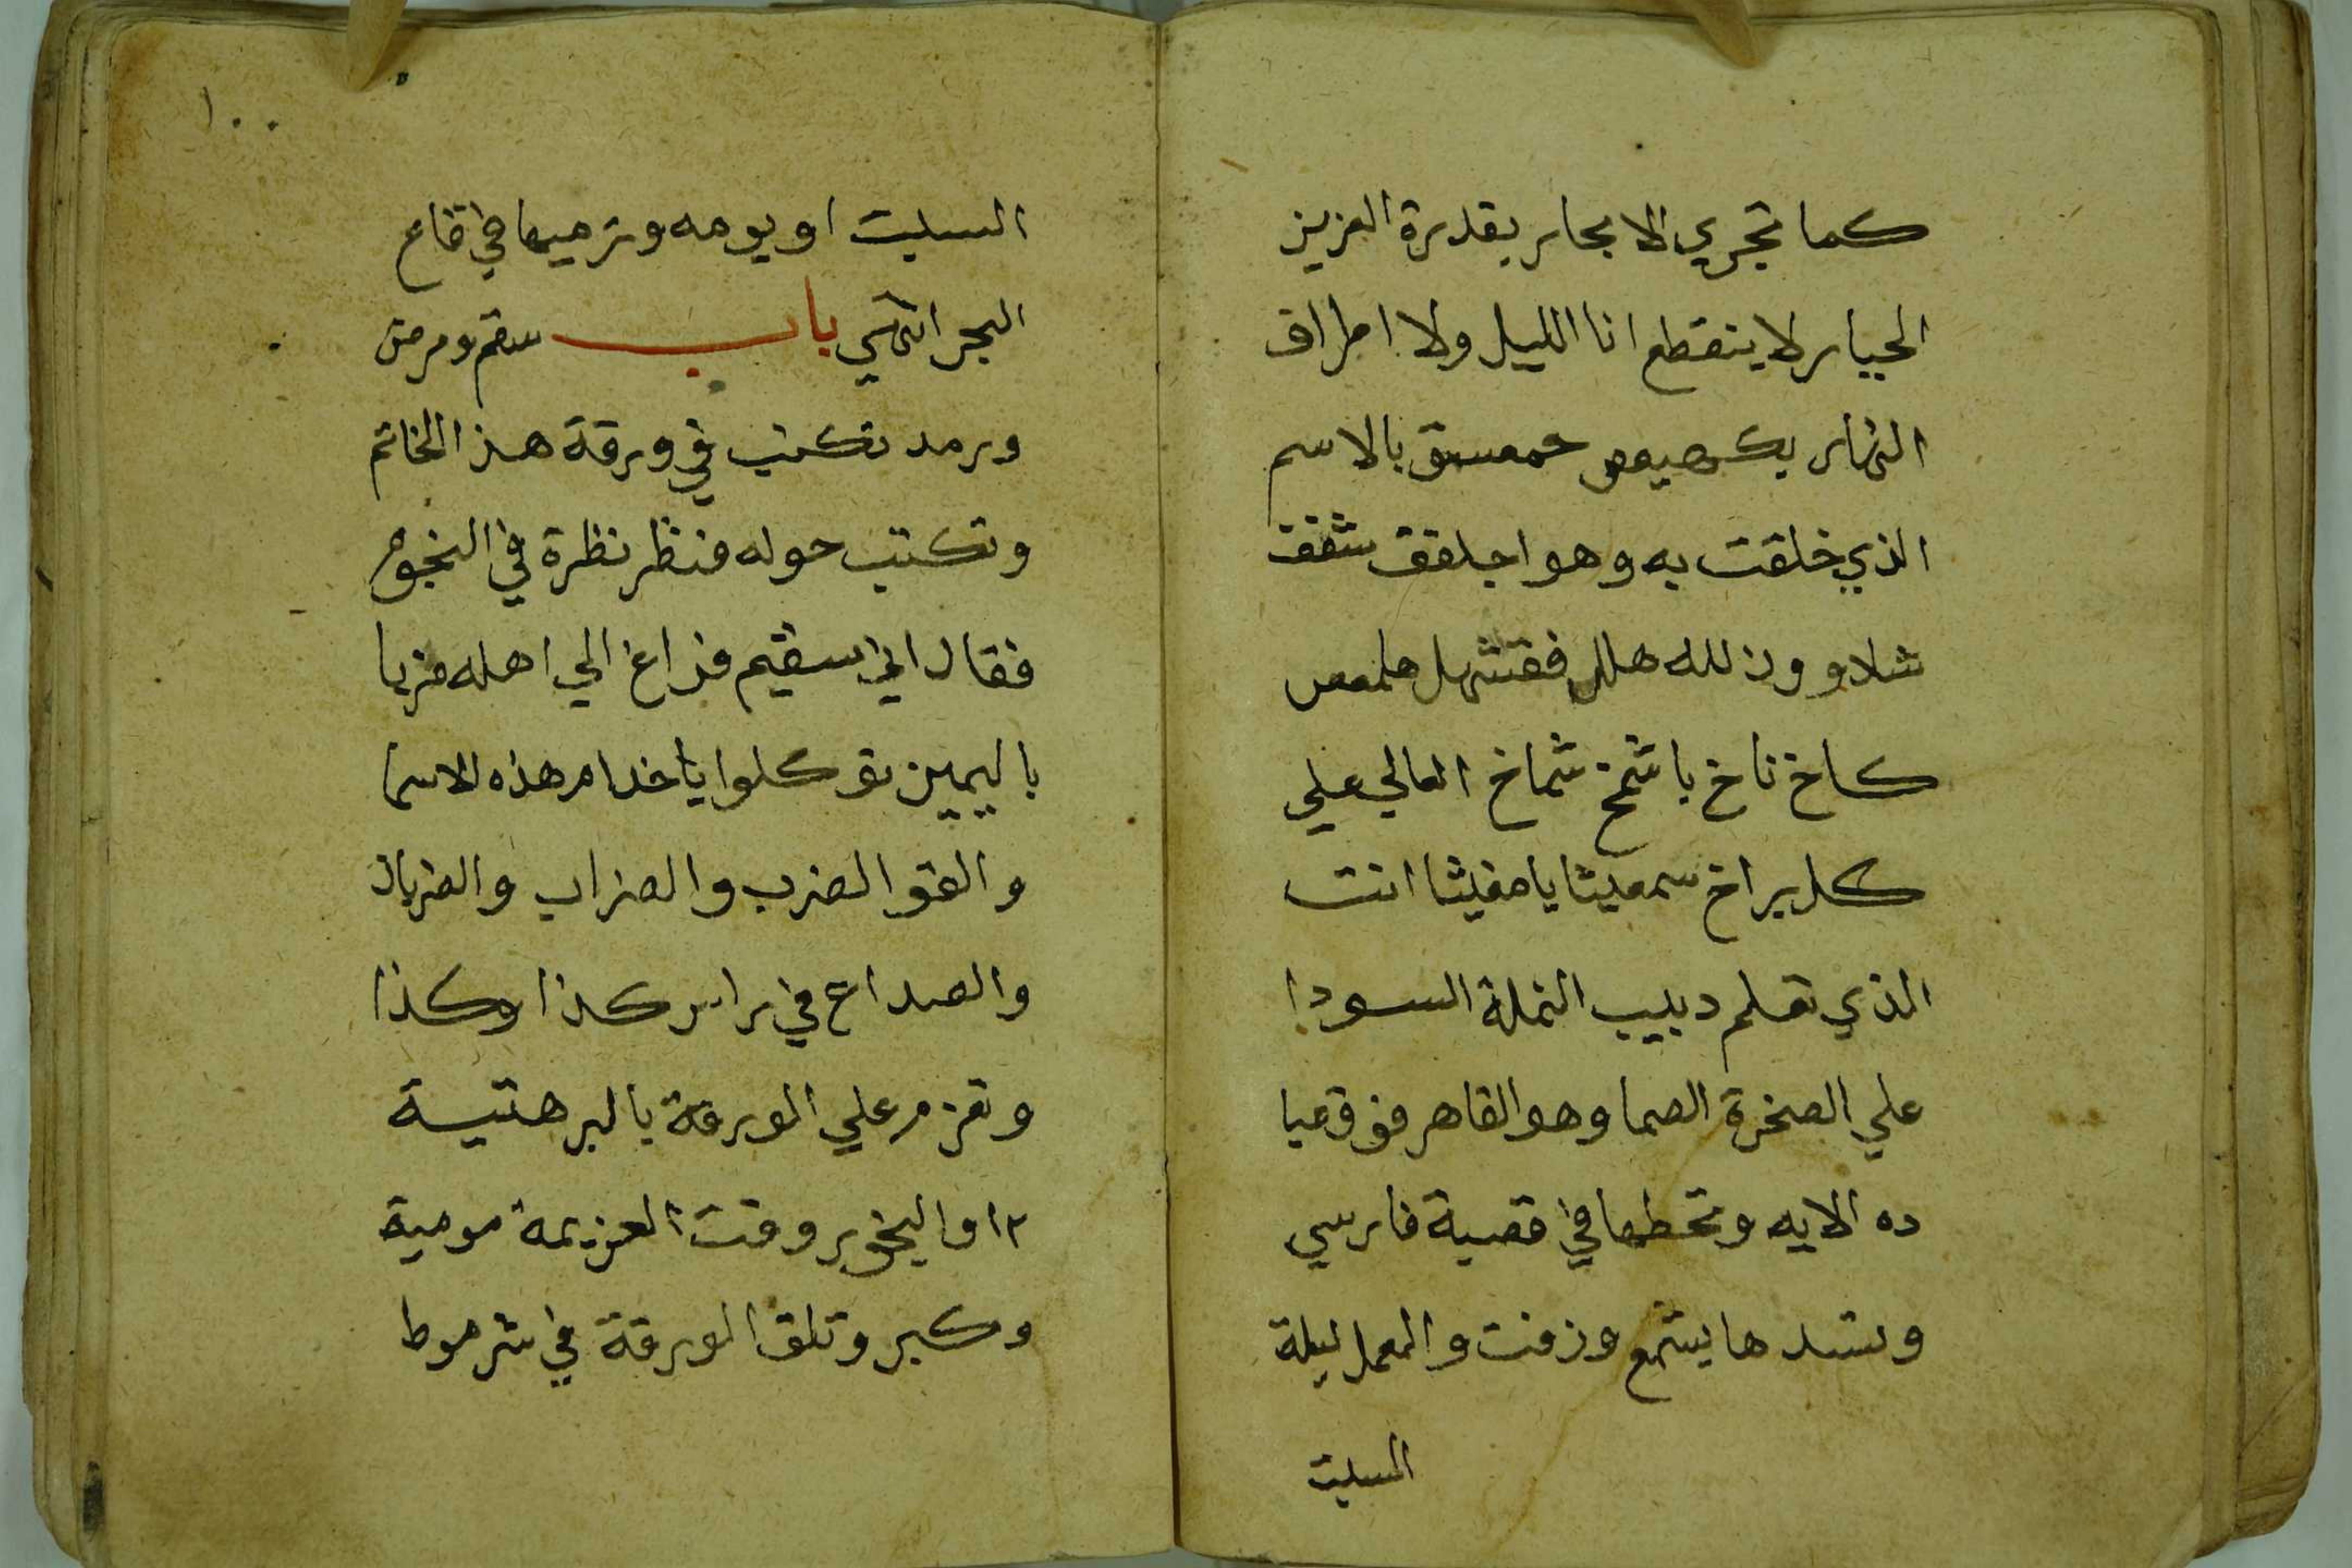 كما تجري الابحار بقدرة العزيز
الجبار لا ينقطع انا الليل ولا اطراف
النهار بكهيعص حمعسق بالاسم
الذي خلقت به وهو اجلفف شفف
شلاو وذلله هلل فقتشهل هلمعص
كاخ ناخ باشمخ شماخ العالي علي
كل براخ سمعيثا يا مغيثا انت
الذي تعلم دبيب النملة السودا
علي الصخرة الصما وهو القاهر فوق عبا
ده الايه وتحطها في قصبة فارسي
وتسدها بشمع وزفت والعمل ليلة
السبت
١٠٠
السبت او يومه وترميها في قاع
البحر انتهي باب سقم ومرض
ورمد تكتب في ورقة هذا الخاتم
وتكتب حوله فنظر نظرة في النجوم
فقال اني سقيم فراغ الي اهله ضربا
باليمين توكلوا يا خدام هذه الاسما
والقو الضرب والضراب والضربان
والصداع في راس كذا وكذا
وتعزم علي الورقة بالبرهتيسة
٣١ والبخور وقت العزيمة موميه
وكبر وتلق الورقة في شرموط